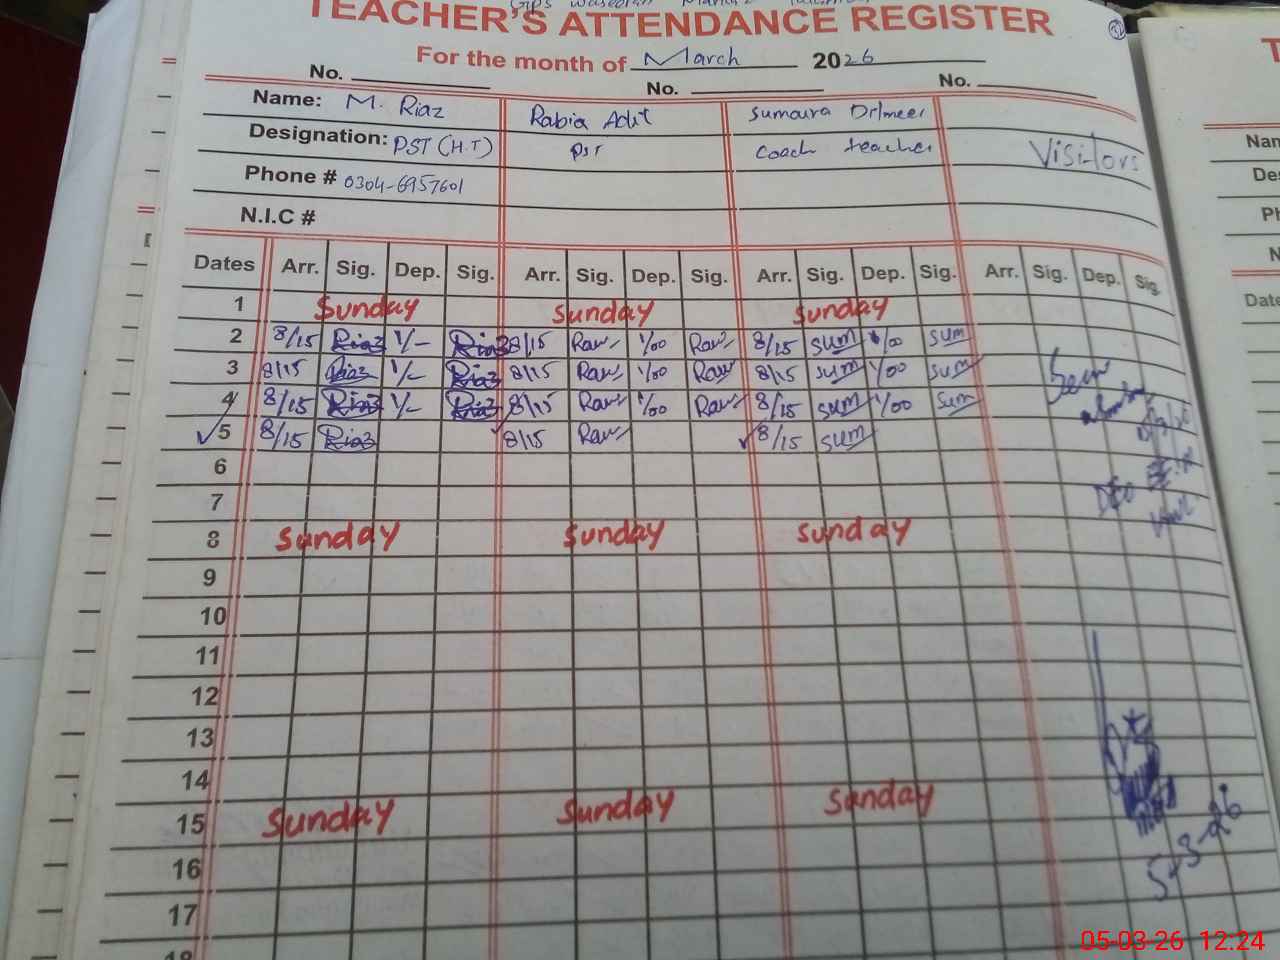 TEACHER'S ATTENDANCE REGISTER
For the month of March 2026
No. No. No.
Name: M. Riaz Rabia Sumaira Visitors
Designation: PST (H.T) PST Coach teacher
Phone # 0304-6957601
N.I.C #
Dates Arr. Sig. Dep. Sig. Arr. Sig. Dep. Sig. Arr. Sig. Dep. Sig. Arr. Sig. Dep. Sig.
1 Sunday Sunday Sunday
2 8/15 Riaz 1/- Riaz 8/15 Raw 1/00 Raw 8/15 sum 1/00 sum
3 8/15 Riaz 1/- Riaz 8/15 Raw 1/00 Raw 8/15 sum 1/00 sum
4 8/15 Riaz 1/- Riaz 8/15 Raw 1/00 Raw 8/15 sum 1/00 sum
5 8/15 Riaz 8/15 Raw 8/15 sum
Seen
DEO
6
7
8 Sunday Sunday Sunday
9
10
11
12
13
14
15 Sunday Sunday Sunday
16
17
18
5-3-26
T
Nam
Des
Ph
N
Date
05-03-26 12:24